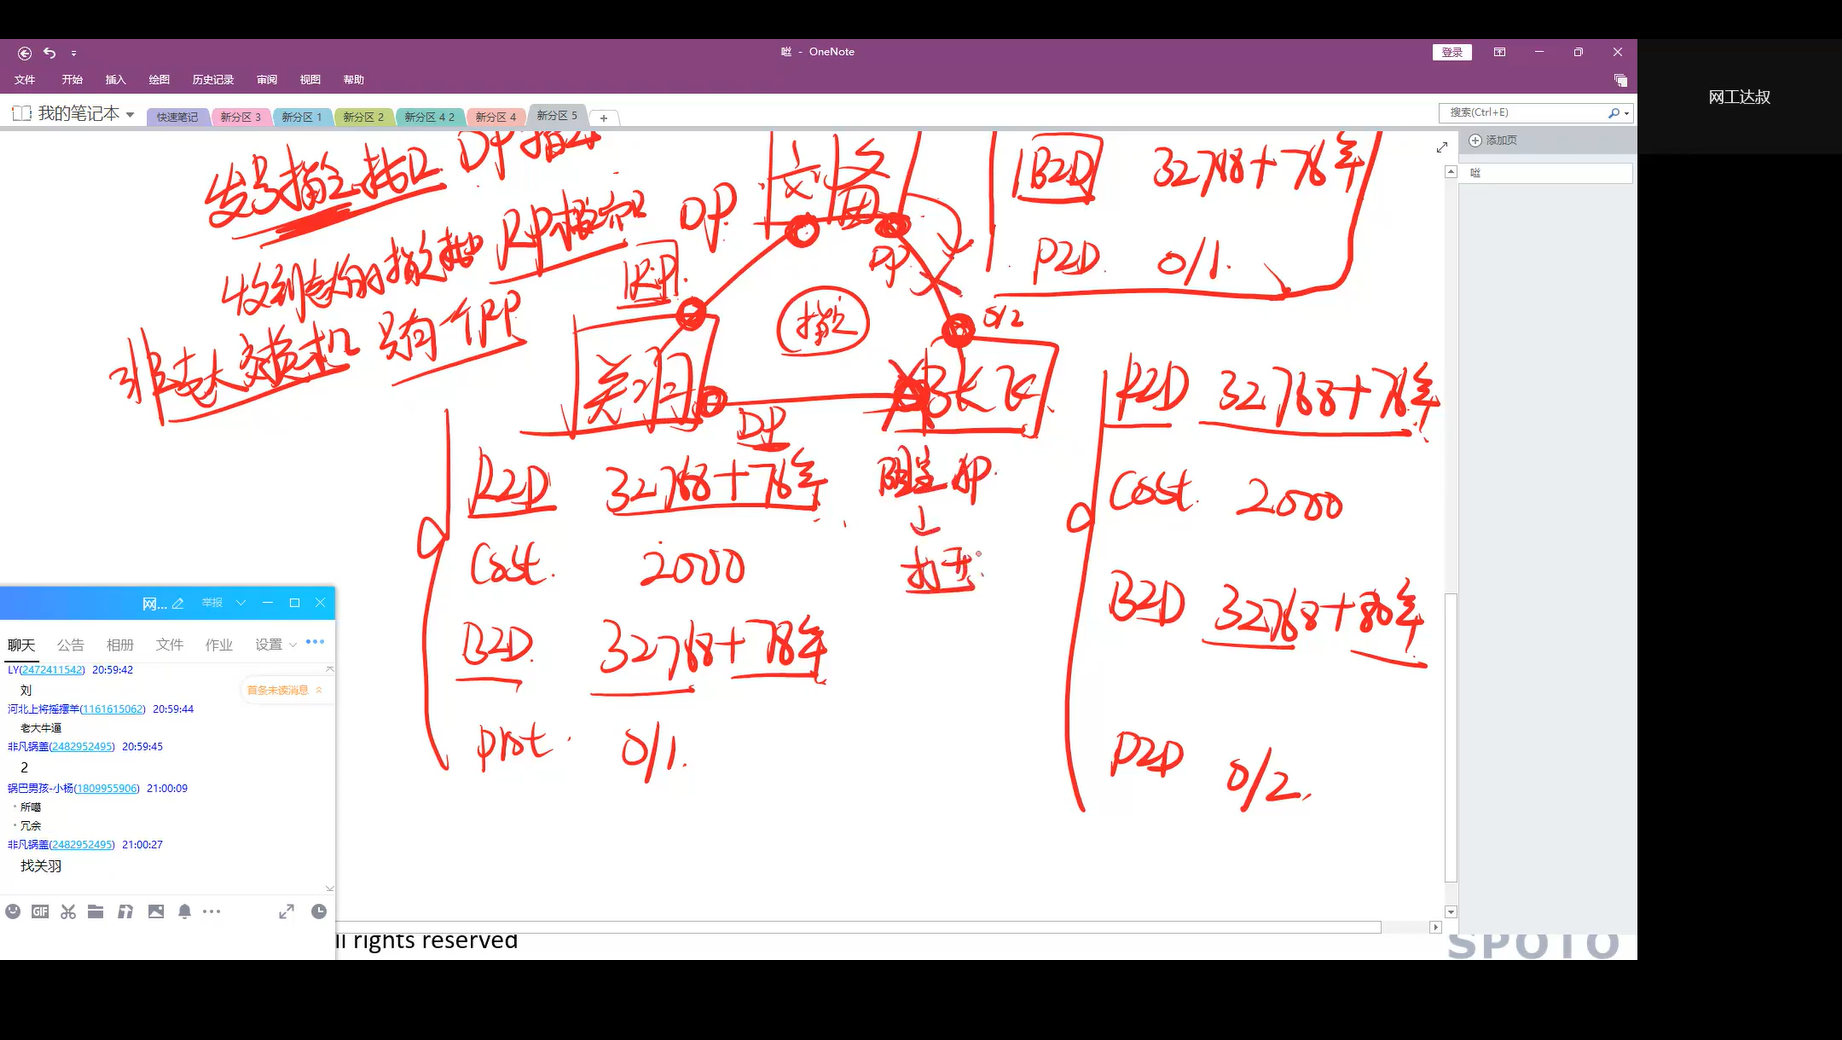 嗞 - OneNote
登录
文件 开始 插入 绘图 历史记录 审阅 视图 帮助
网工达叔
我的笔记本
快速笔记 新分区 3 新分区 1 新分区 2 新分区 4 2 新分区 4 新分区 5
搜索(Ctrl+E)
添加页
嗞
DP
B2D 32768+76年
P2D 0/1.
RP
DP
RP.
DP
0/2
非老大交换机 只有一个RP
关羽
张飞
DP
R2D 32768+76年
Cost. 2000
B2D. 32768+78年
prot. 0/1.
阻塞 AP
打开
R2D 32768+76年
Cost. 2000
B2D 32768+80年
P2D 0/2.
网... 举报
聊天 公告 相册 文件 作业 设置
LY(2472411542) 20:59:42
刘
首条未读消息
河北上将摇摆羊(1161615062) 20:59:44
老大牛逼
非凡锅盖(2482952495) 20:59:45
2
锅巴男孩-小杨(1809955906) 21:00:09
所噶
冗余
非凡锅盖(2482952495) 21:00:27
找关羽
GIF
ll rights reserved
SPOTO